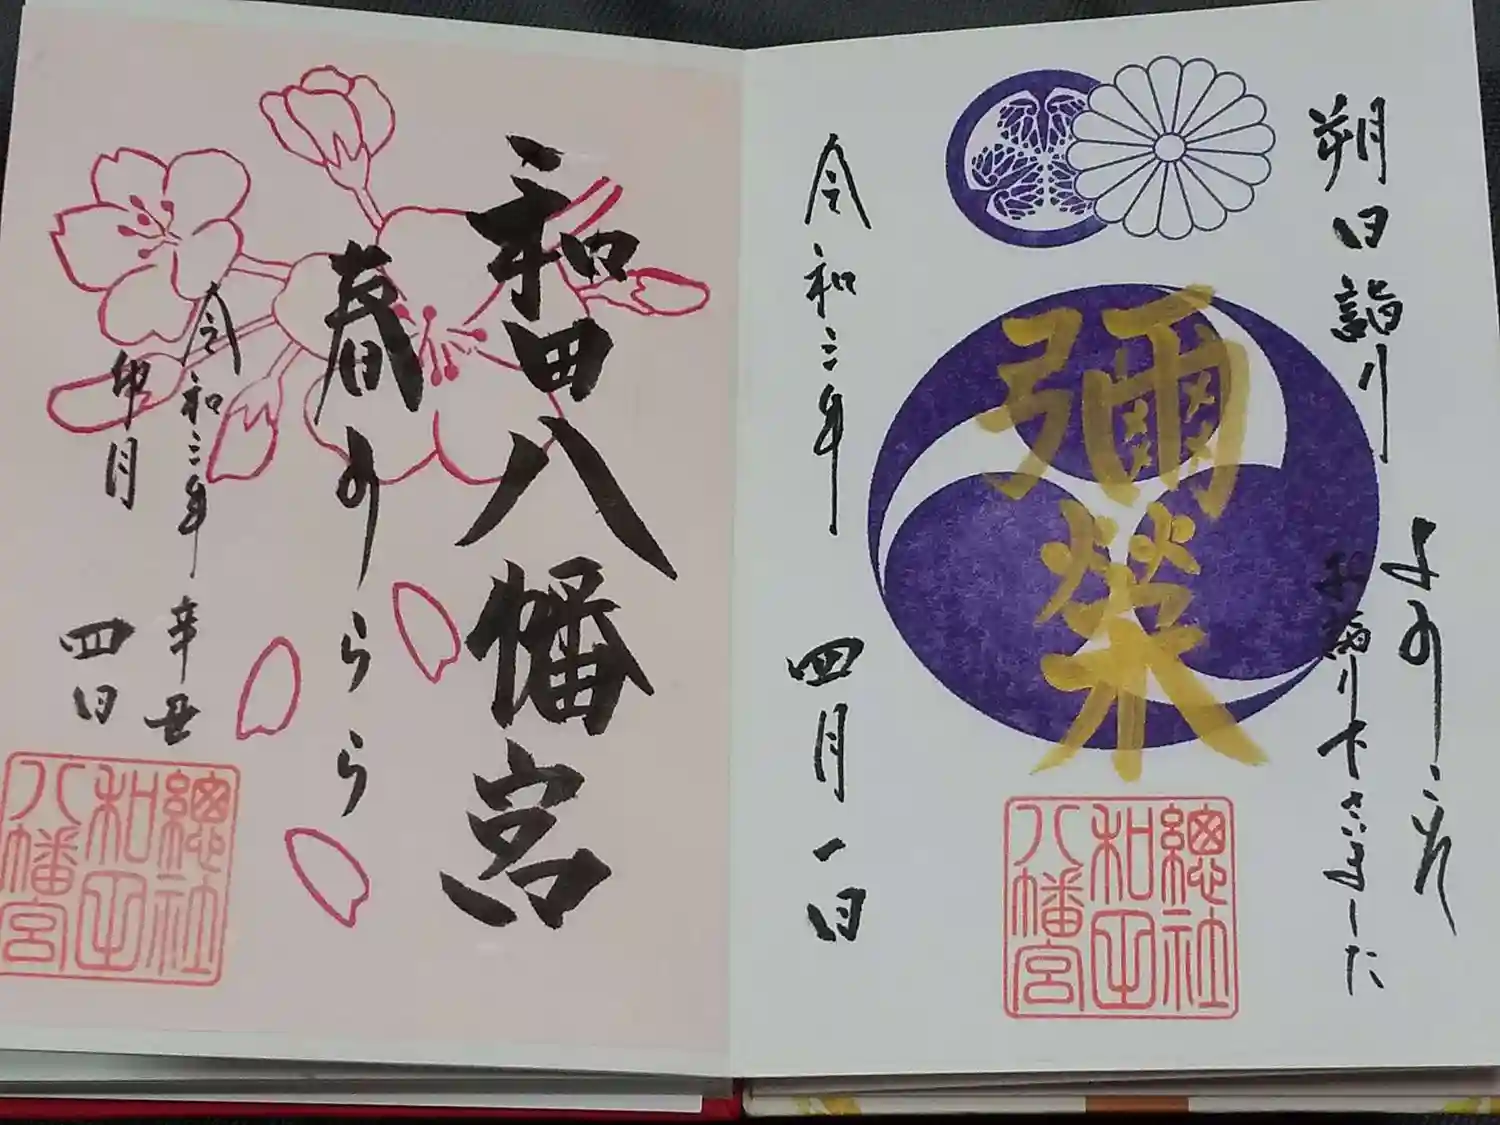 朔日詣り
よりご参
お詣り下さいました
彌榮
令和三年 四月一日
總社
和田
八幡宮
和田八幡宮
春うらら
令和三年 辛丑
卯月 四日
總社
和田
八幡宮